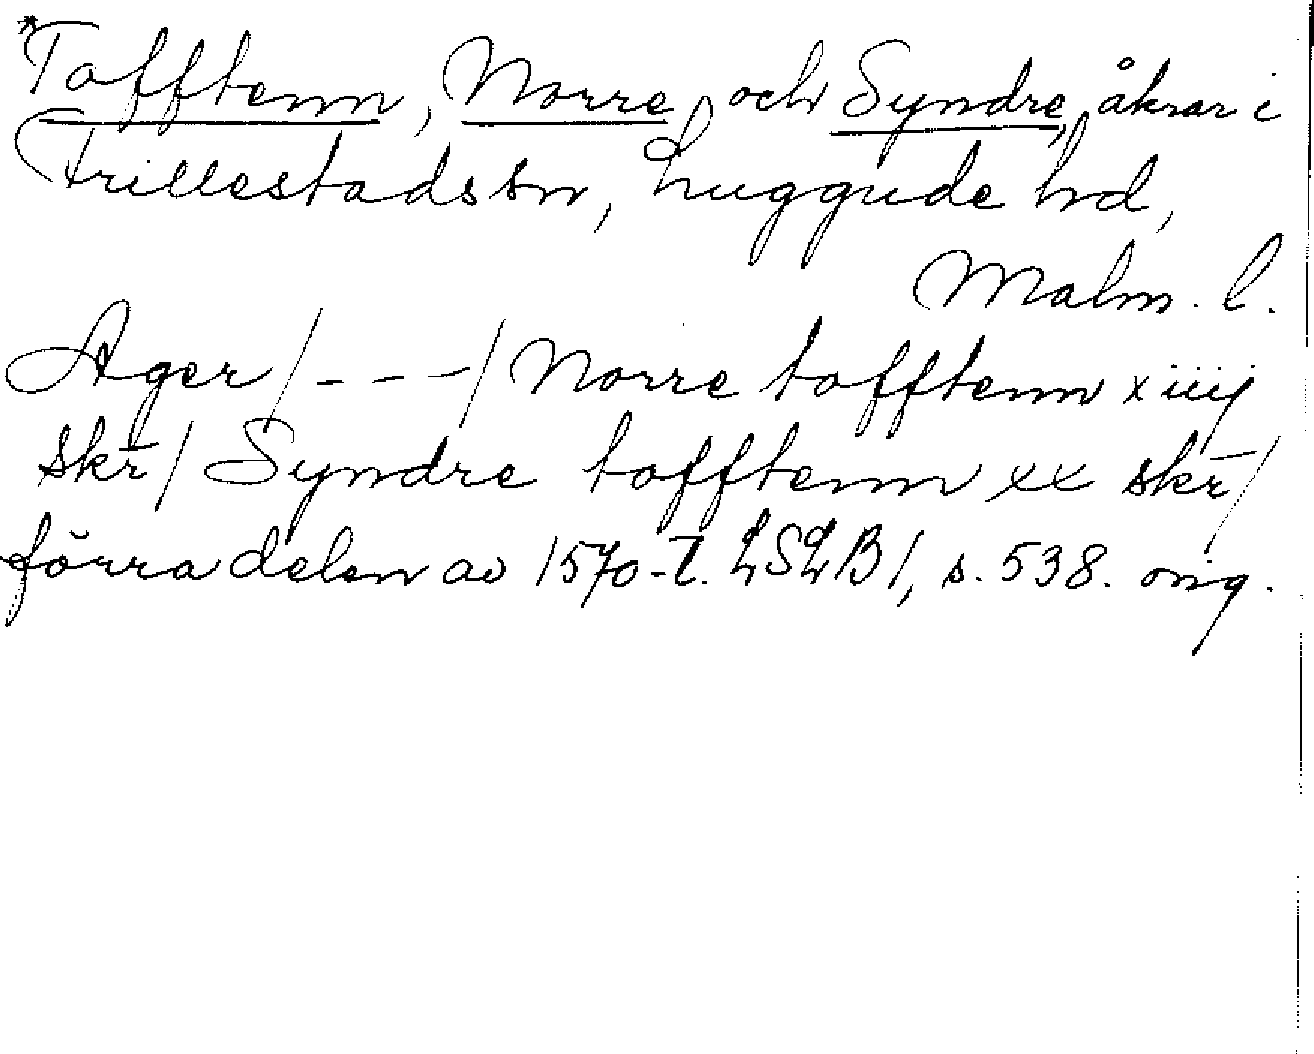 *Tofftenn, Norre och Syndre, åkrar i
Frillestads sn, Luggude hd,
Malm. l.
Ager/---/Norre tofftenn x iiij
skr̄/Syndre tofftenn xx skr̄/
förra delen av 1570-t. LSLB1, s. 538. orig.